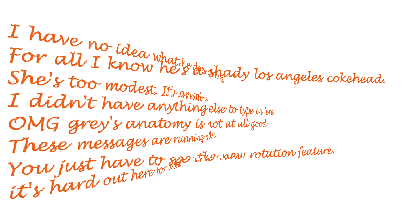 I have no idea what he does
For all I know he's a shady los angeles cokehead.
She's too modest. It's
I didn't have anything else to type in
OMG grey's anatomy is not at all good
These messages are running
You just have to see the new rotution feature.
it's hard out here for